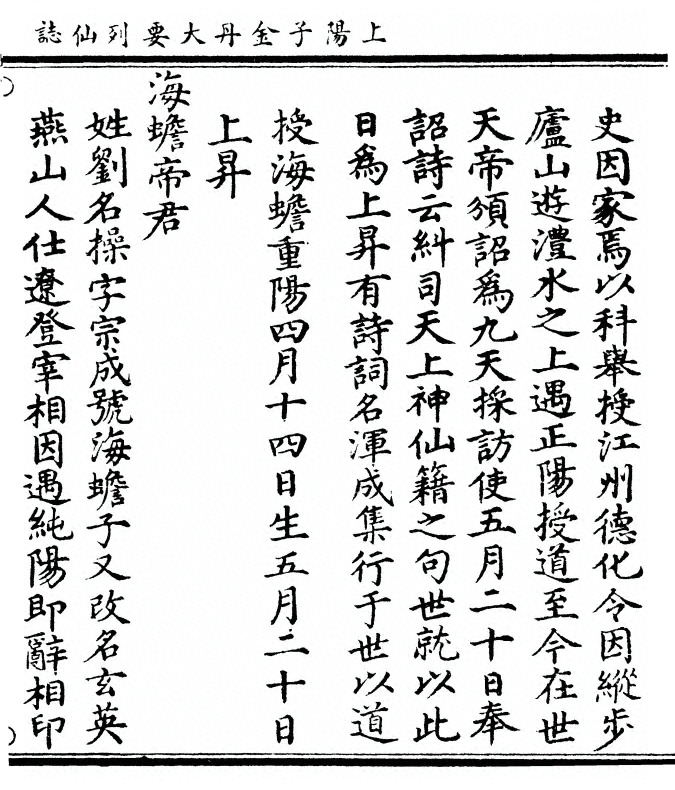 上陽子金丹大要列仙誌
史因家焉以科舉授江州德化令因縱步
廬山遊澧水之上遇正陽授道至今在世
天帝頒詔爲九天採訪使五月二十日奉
詔詩云糾司天上神仙籍之句世就以此
日爲上昇有詩詞名渾成集行于世以道
授海蟾重陽四月十四日生五月二十日
上昇
海蟾帝君
姓劉名操字宗成號海蟾子又改名玄英
燕山人仕遼登宰相因遇純陽即辭相印